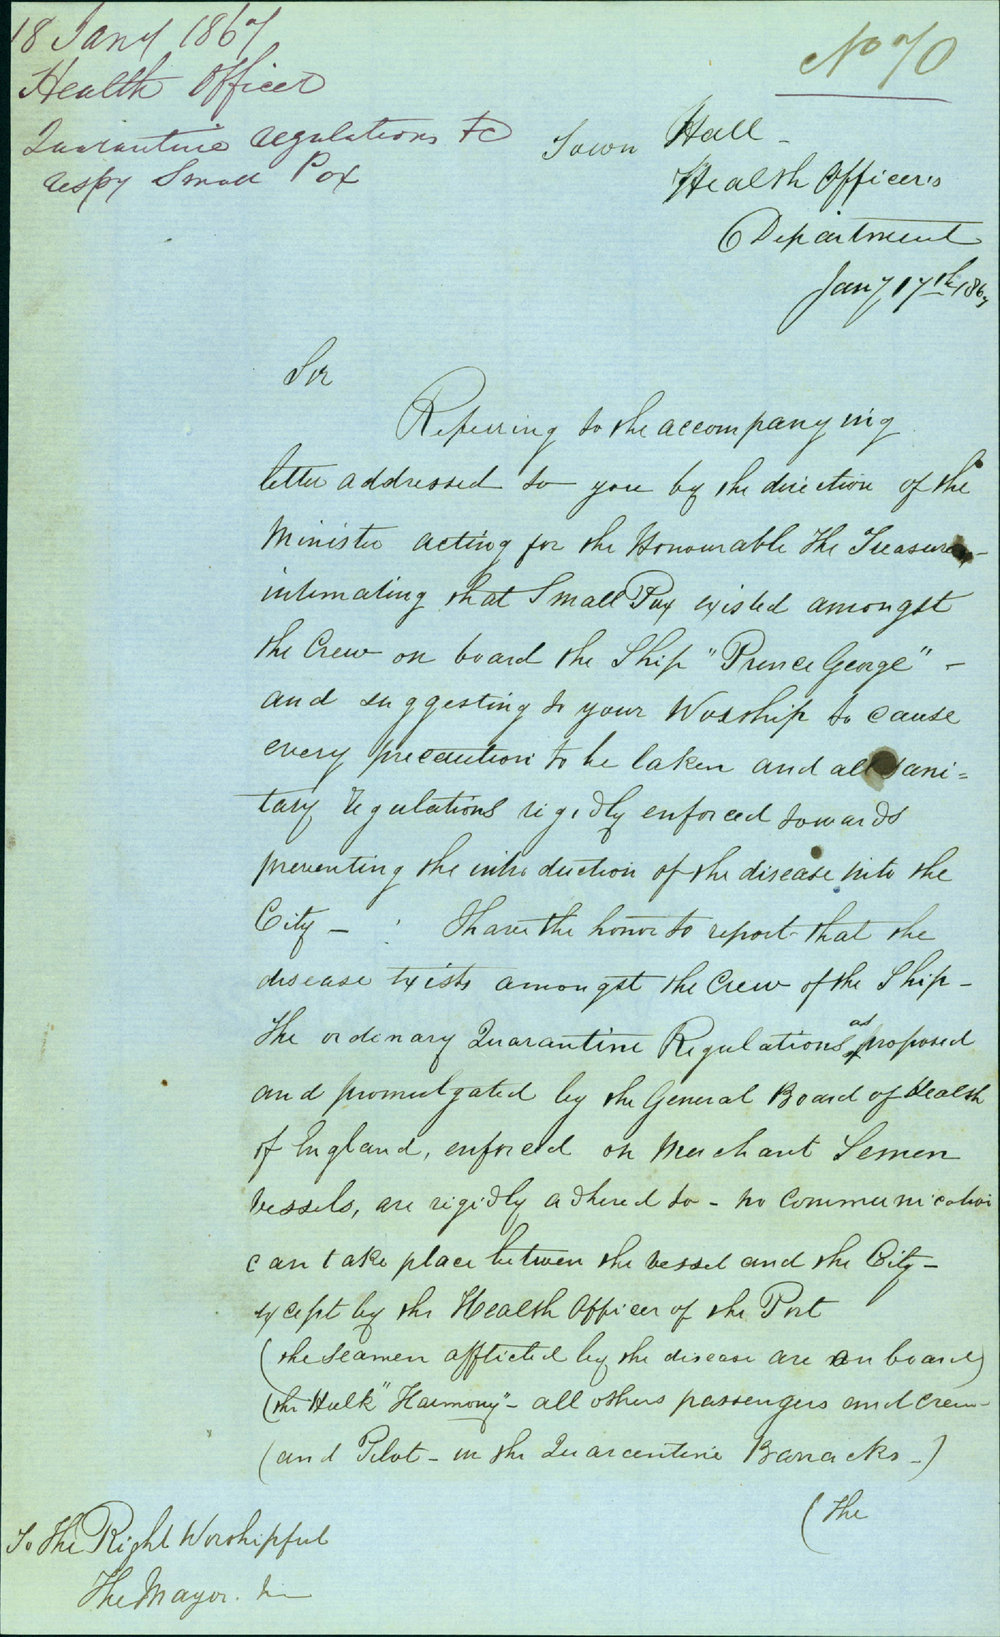 18 Jany 1867
Health Officer
Quarantine regulations &c
respg Small Pox
No 70
Town Hall -
Health Officer's
Department
Jany 17th 1867
Sir
Referring to the accompanying
letter addressed to you by the direction of the
Minister acting for the Honourable the Treasurer -
intimating that Small Pox existed amongst
the Crew on board the Ship "Prince George" -
and suggesting to your Worship to cause
every precaution to be taken and all sani=
tary regulations rigidly enforced towards
preventing the introduction of the disease into the
City - I have the honor to report that the
disease exists amongst the Crew of the Ship -
the ordenary Quarantine Regulations as proposed
and promulgated by the General Board of Health
of England, enforced on Merchant Semen
vessels, are rigidly adhered to - no communication
can take place between the vessel and the City -
except by the Health Officer of the Port
(the seamen afflicted by the disease are on board)
(the Hulk "Harmony" - all others passengers and crew -
(and Pilot - in the Quarantine Barracks -)
(the
To The Right Worshipful
The Mayor.